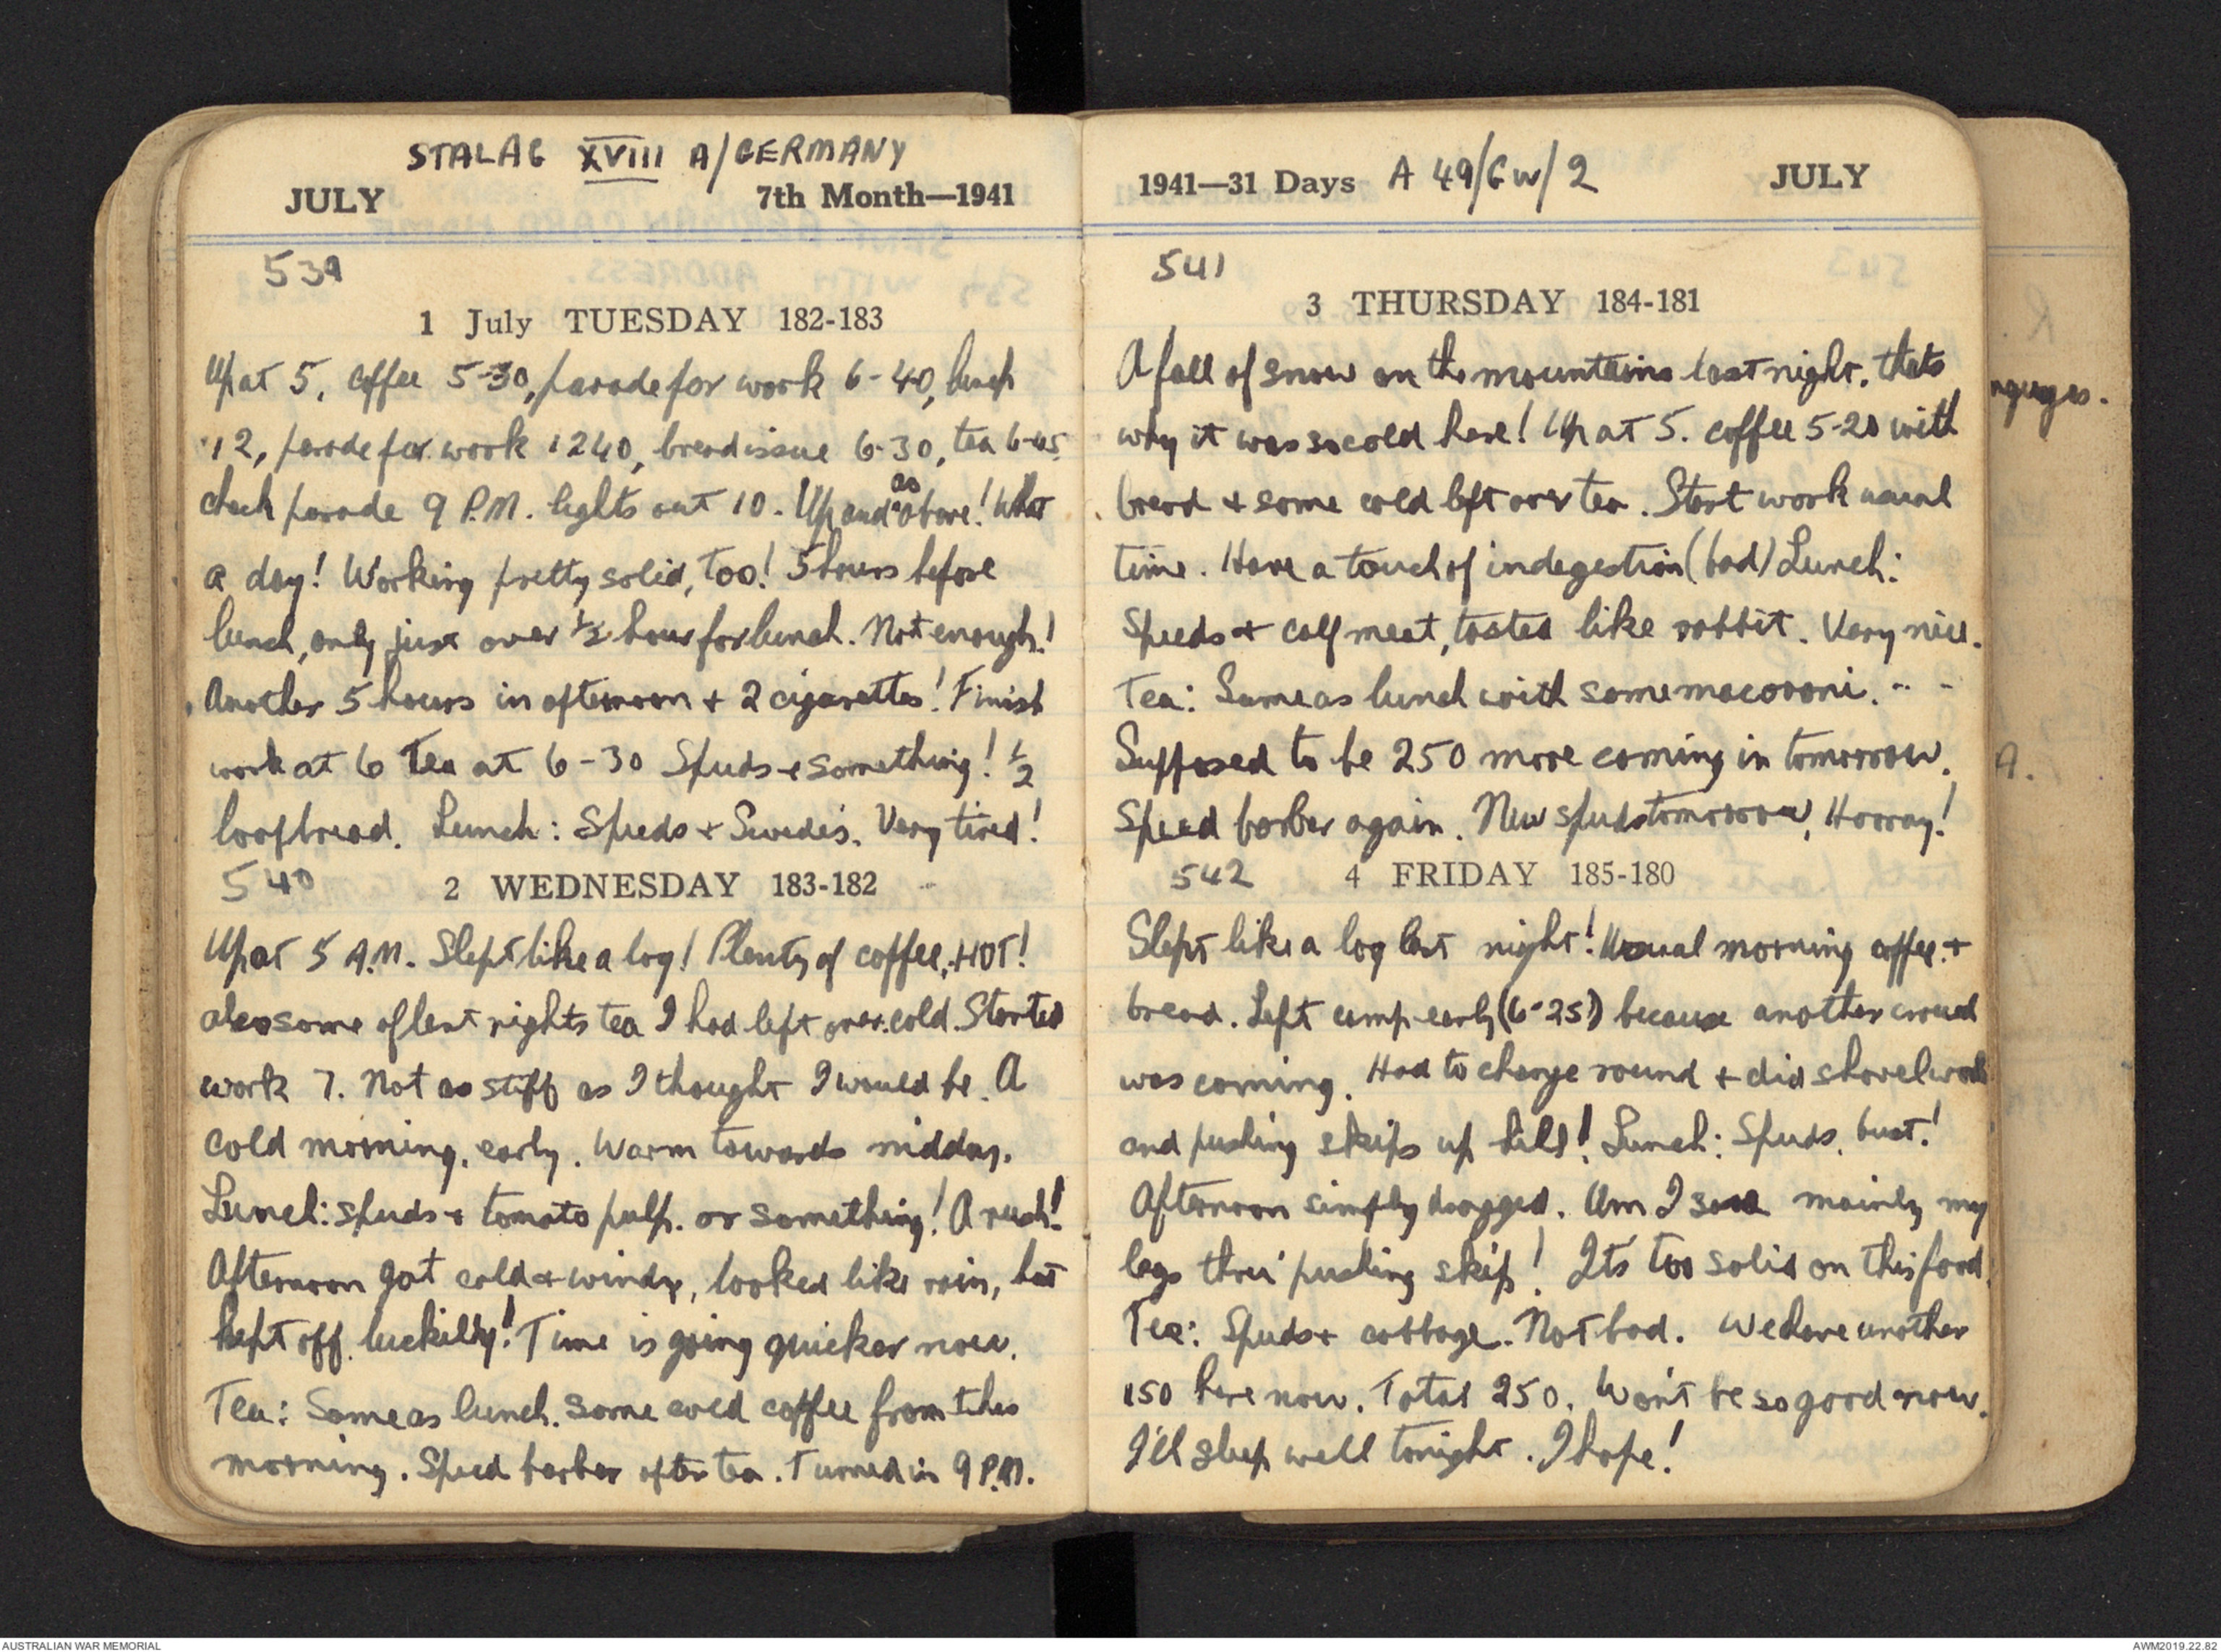 STALAG XVIII A/GERMANY
JULY 7th Month—1941
539
1 July TUESDAY 182-183
Up at 5, coffee 5-30, parade for work 6-40, lunch
12, parade for work 1240, bread issue 6-30, tea 6-45,
check parade 9 P.M. lights out 10. Up and as above! What
a day! Working pretty solid, too! 5 hours before
lunch, only just over ½ hour for lunch. Not enough!
Another 5 hours in afternoon + 2 cigarettes! Finish
work at 6 Tea at 6-30 Spuds + something! ½
loaf bread. Lunch: Spuds + Swedes. Very tired!
540
2 WEDNESDAY 183-182
Up at 5 A.M. Slept like a log! Plenty of coffee, HOT!
also some of last nights tea I had left over. cold. Started
work 7. Not as stiff as I thought I would be. A
cold morning, early. Warm towards midday.
Lunch: spuds + tomato pulp. or something! A rush!
Afternoon got cold + windy, looked like rain, but
kept off. luckilly! Time is going quicker now.
Tea: Same as lunch. some cold coffee from this
morning. Spud barber after tea. Turned in 9 P.M.
1941—31 Days A 49/GW/2 JULY
541
3 THURSDAY 184-181
A fall of snow on the mountains last night. thats
why it was so cold here! Up at 5. coffee 5-20 with
bread + some cold left over tea. Start work usual
time. Have a touch of indegestion (bad) Lunch:
Spuds + calf meat, tasted like rabbit. Very nice.
Tea: Same as lunch with some macoroni.
Supposed to be 250 more coming in tomorrow.
Spud barber again. New spuds tomorrow, Hooray!
542
4 FRIDAY 185-180
Slept like a log last night! Usual morning coffee +
bread. Left camp early (6-25!) because another crowd
was coming. Had to change round + did shovel work
and pushing skips up hill! Lunch: Spuds. bust!
Afternoon simply dragged. Am I sore mainly my
legs thru' pushing skip! Its too solid on this food.
Tea: Spuds + cabbage. Not bad. We have another
150 here now. Total 250. Won't be so good now.
I'll sleep well tonight. I hope!
R
nguages.
A.
AUSTRALIAN WAR MEMORIAL
AWM2019.22.82